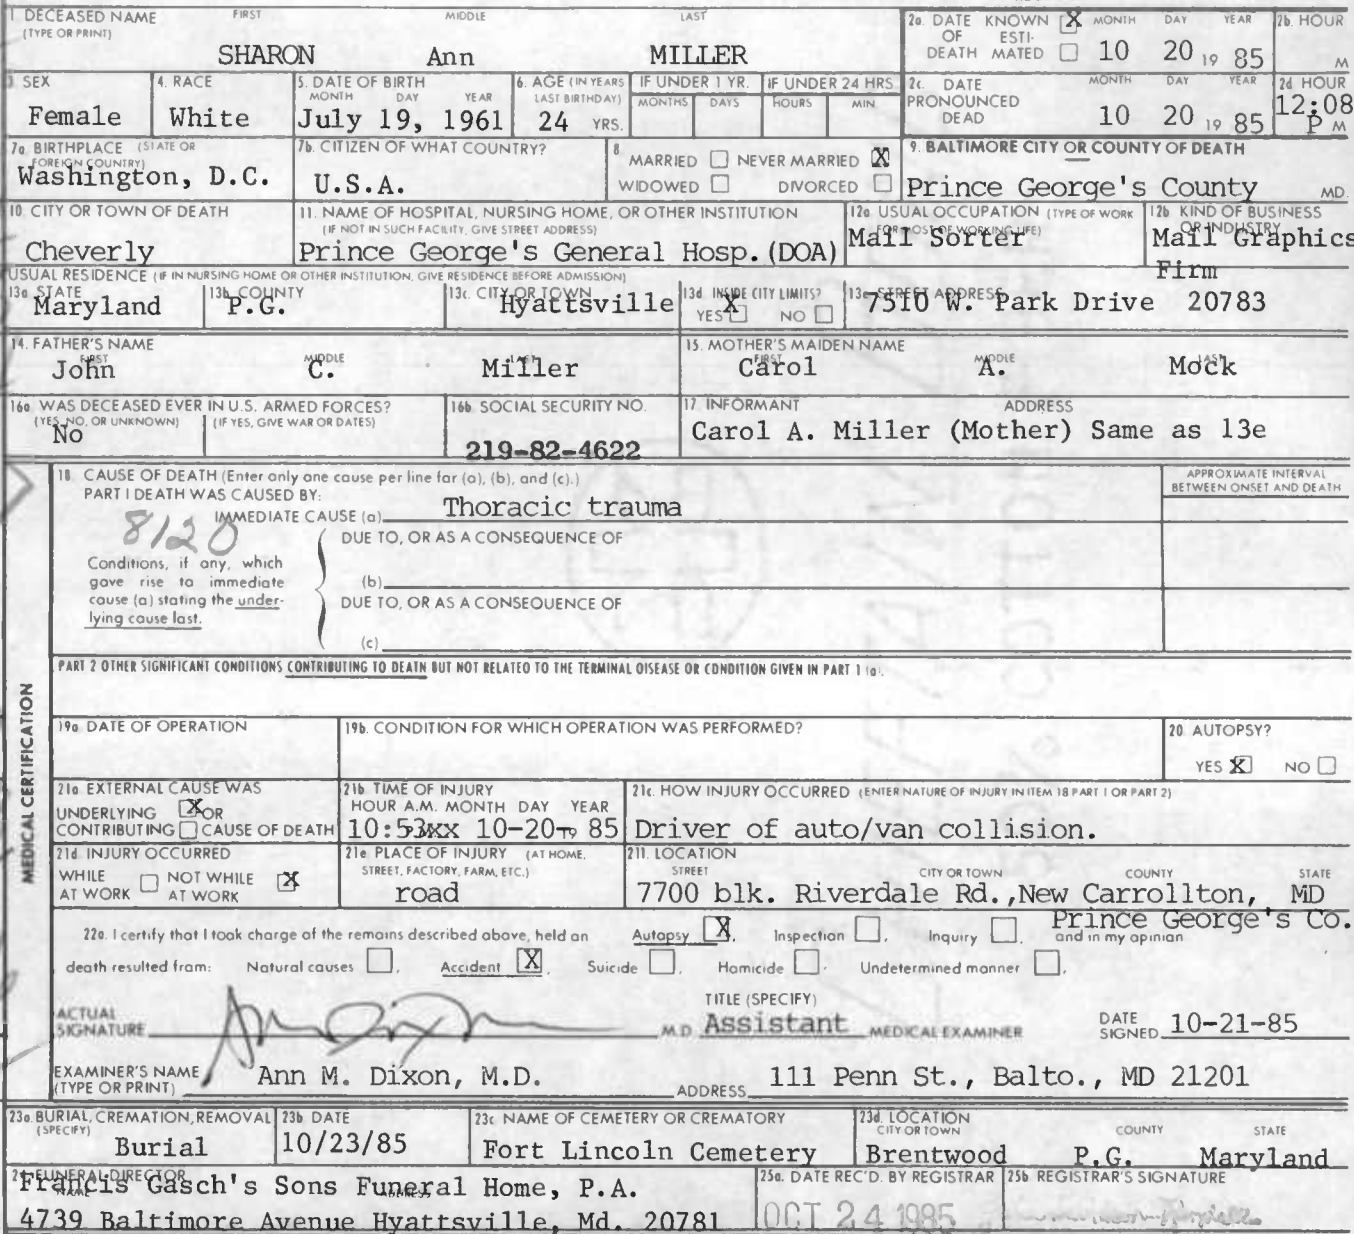 1 DECEASED NAME FIRST MIDDLE LAST
(TYPE OR PRINT)
SHARON Ann MILLER
2a. DATE OF DEATH KNOWN X ESTIMATED MONTH DAY YEAR
10 20 19 85
2b. HOUR M
3 SEX
Female
4. RACE
White
5. DATE OF BIRTH
MONTH DAY YEAR
July 19, 1961
6. AGE (IN YEARS LAST BIRTHDAY)
24 YRS.
IF UNDER 1 YR.
MONTHS DAYS
IF UNDER 24 HRS
HOURS MIN
2c. DATE PRONOUNCED DEAD MONTH DAY YEAR
10 20 19 85
2d HOUR
12:08
P M
7a. BIRTHPLACE (STATE OR FOREIGN COUNTRY)
Washington, D.C.
7b. CITIZEN OF WHAT COUNTRY?
U.S.A.
8. MARRIED NEVER MARRIED X
WIDOWED DIVORCED
9. BALTIMORE CITY OR COUNTY OF DEATH
Prince George's County MD.
10. CITY OR TOWN OF DEATH
Cheverly
11. NAME OF HOSPITAL, NURSING HOME, OR OTHER INSTITUTION
(IF NOT IN SUCH FACILITY, GIVE STREET ADDRESS)
Prince George's General Hosp.(DOA)
12a USUAL OCCUPATION (TYPE OF WORK FOR MOST OF WORKING LIFE)
Mail Sorter
12b KIND OF BUSINESS OR INDUSTRY
Mail Graphics
Firm
USUAL RESIDENCE (IF IN NURSING HOME OR OTHER INSTITUTION, GIVE RESIDENCE BEFORE ADMISSION)
13a STATE
Maryland
13b COUNTY
P.G.
13c. CITY OR TOWN
Hyattsville
13d. INSIDE CITY LIMITS?
YES X NO
13e STREET ADDRESS
7510 W. Park Drive 20783
14. FATHER'S NAME
FIRST MIDDLE LAST
John C. Miller
15. MOTHER'S MAIDEN NAME
FIRST MIDDLE LAST
Carol A. Mock
16a WAS DECEASED EVER IN U.S. ARMED FORCES?
(YES, NO, OR UNKNOWN) (IF YES, GIVE WAR OR DATES)
No
16b SOCIAL SECURITY NO.
219-82-4622
17 INFORMANT ADDRESS
Carol A. Miller (Mother) Same as 13e
18 CAUSE OF DEATH (Enter only one cause per line for (a), (b), and (c).)
PART I DEATH WAS CAUSED BY:
IMMEDIATE CAUSE (a) Thoracic trauma
8120
APPROXIMATE INTERVAL
BETWEEN ONSET AND DEATH
DUE TO, OR AS A CONSEQUENCE OF
Conditions, if any, which
gave rise to immediate
cause (a) stating the under-
lying cause last.
(b)
DUE TO, OR AS A CONSEQUENCE OF
(c)
PART 2 OTHER SIGNIFICANT CONDITIONS CONTRIBUTING TO DEATH BUT NOT RELATED TO THE TERMINAL DISEASE OR CONDITION GIVEN IN PART 1 (a).
MEDICAL CERTIFICATION
19a DATE OF OPERATION
19b. CONDITION FOR WHICH OPERATION WAS PERFORMED?
20 AUTOPSY?
YES X NO
21a EXTERNAL CAUSE WAS
UNDERLYING X OR
CONTRIBUTING CAUSE OF DEATH
21b TIME OF INJURY
HOUR A.M. MONTH DAY YEAR
10:53xx 10-20-19 85
21c. HOW INJURY OCCURRED (ENTER NATURE OF INJURY IN ITEM 18 PART 1 OR PART 2)
Driver of auto/van collision.
21d INJURY OCCURRED
WHILE AT WORK NOT WHILE AT WORK X
21e PLACE OF INJURY (AT HOME, STREET, FACTORY, FARM, ETC.)
road
21f. LOCATION
STREET CITY OR TOWN COUNTY STATE
7700 blk. Riverdale Rd.,New Carrollton, MD
Prince George's Co.
22a. I certify that I took charge of the remains described above, held an Autopsy X, Inspection, Inquiry, and in my opinion
death resulted from: Natural causes, Accident X, Suicide, Homicide, Undetermined manner.
ACTUAL SIGNATURE Ann Dixon M.D.
TITLE (SPECIFY)
Assistant MEDICAL EXAMINER
DATE SIGNED 10-21-85
EXAMINER'S NAME
(TYPE OR PRINT) Ann M. Dixon, M.D.
ADDRESS 111 Penn St., Balto., MD 21201
23a. BURIAL, CREMATION, REMOVAL
(SPECIFY)
Burial
23b DATE
10/23/85
23c NAME OF CEMETERY OR CREMATORY
Fort Lincoln Cemetery
23d. LOCATION
CITY OR TOWN COUNTY STATE
Brentwood P.G. Maryland
24 FUNERAL DIRECTOR
NAME ADDRESS
Francis Gasch's Sons Funeral Home, P.A.
4739 Baltimore Avenue Hyattsville, Md. 20781
25a. DATE REC'D. BY REGISTRAR
OCT 24 1985
25b REGISTRAR'S SIGNATURE